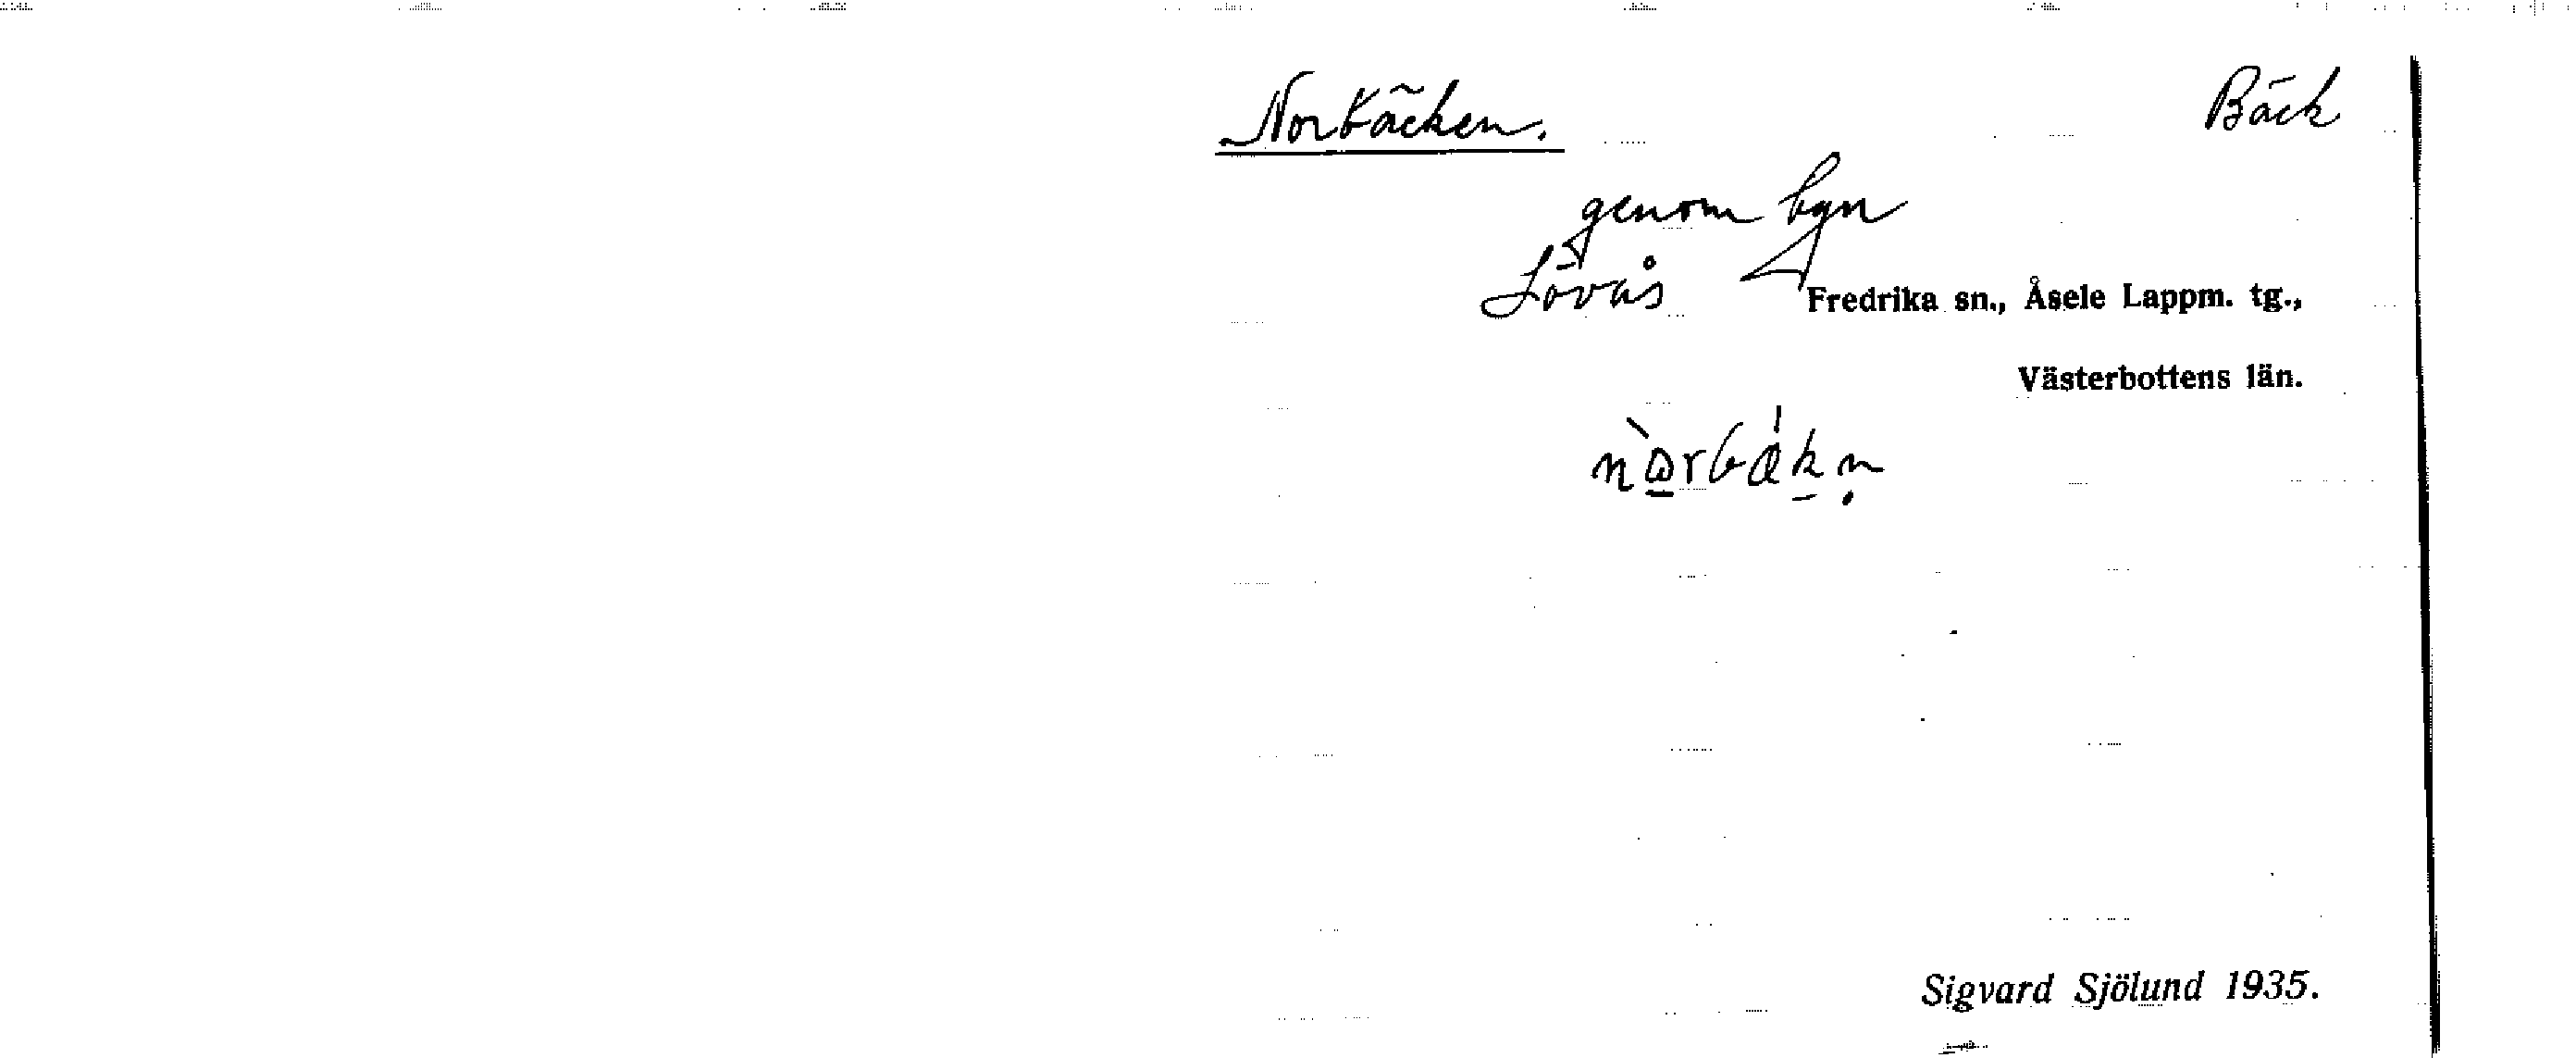 Norbäcken. Bäck
genom byn
Lövås Fredrika sn., Åsele Lappm. tg.,
Västerbottens län.
Sigvard Sjölund 1935.